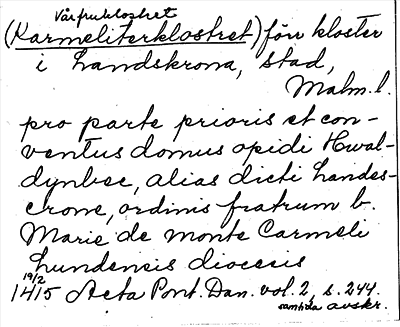 Vårfruklostret
(Karmeliterklostret) förr kloster
i Landskrona, stad,
Malm. l.
pro parte prioris et con-
ventus domus opidi Hwal-
dynbec, alias dicti Landes-
crone, ordinis fratrum b.
Marie de monte Carmeli
Lundensis diocesis
19/2
1415 Acta Pont. Dan. vol. 2, s. 244.
samtida avskr.